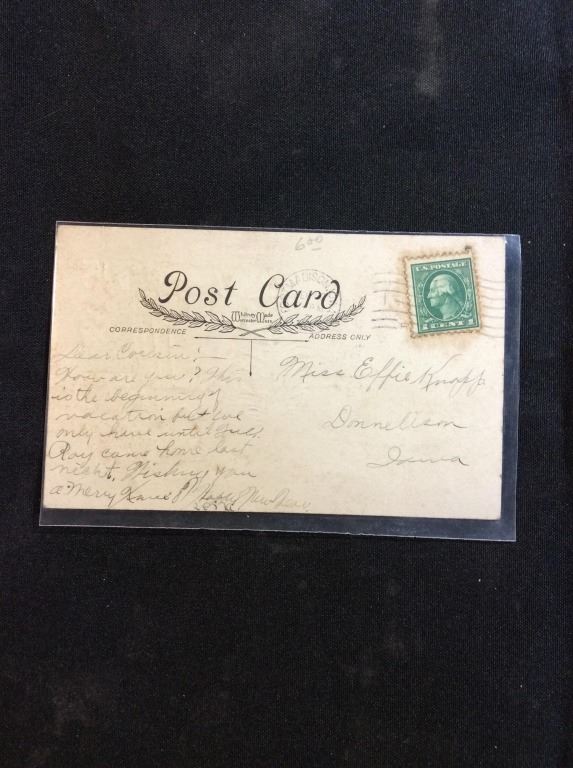 600
MADISON
Post Card
Whitney Made
Worcester Mass
CORRESPONDENCE
ADDRESS ONLY
U.S. POSTAGE
1 CENT 1
Dear Cousin:—
How are you? This
is the beginning of
vacation but we
only have until
Roy came home last
night. Wishing you
a Merry Xmas & Happy New Year
Miss Effie Knapp
Donnellson
Iowa